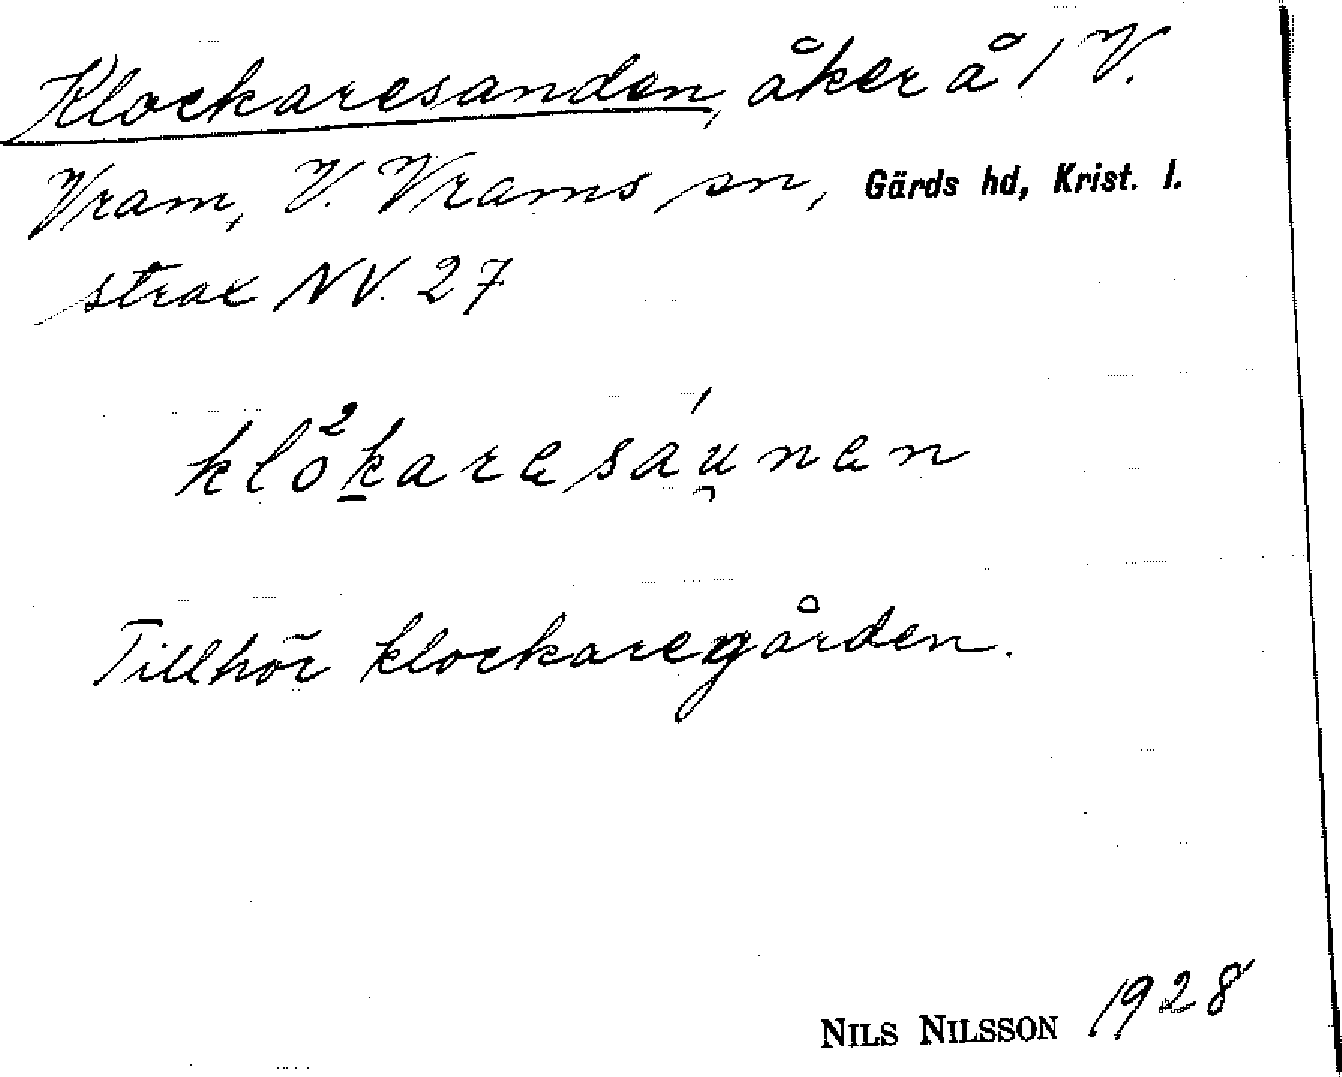 Klockaresanden, åker å 1 V.
Vram, V. Vrams sn, Gärds hd, Krist. l.
strax NV. 27
klo²k̲aresáu̯nen
Tillhör klockaregården.
NILS NILSSON 1928